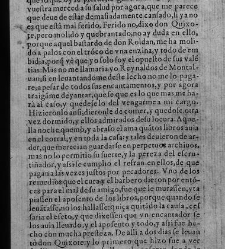 vuestra merced a su salud por agora, que me parece
que deue de estar demasiadamente cansado, si ya no
es que està mal ferido. Ferido no, dixo don Quixo-
te, pero molido y quebrantado, no ay duda en ello,
porque aquel bastardo de don Roldan, me ha mo-
lido a palos con el tronco de vna enzina, y todo de em-
bidia, porque ve que yo solo soy el opuesto de sus valē
tias. Mas no me llamaria yo Reynaldos de Montal-
uan si en leuantandome deste lecho no me lo paga-
re, a pesar de todos sus encantamentos, y por agora
traiganme de yantar, que se que es lo que mas me
harà al caso, y quedese lo del vengarme a mi cargo.
Hizieronlo ansi, dieronle de comer, y quedose otra
vez dormido, y ellos admirados de su locura. Aque-
lla noche quemò, y abrasò el ama quantos libros auia
en el corral, y en toda la casa, y tales deuieron de ar-
der, que merecian guardarse en perpetuos archiuos,
mas no lo permitio su suerte, y la pereza del escru-
tiñador, y assi se cumplio el refran en ellos, de que
pagan a las vezes justos por pecadores. Vno de los
remedios que el cura, y el barbero dieron por enton-
ces para el mal de su amigo, fue que le murassen, y ta-
piassen el aposento de los libros, porque quando se
leuantasse no los hallasse, quiza quitando la causa, ces-
saria el efeto, y que dixessen que vn encantador se
los auia lleuado, y el aposento y todo, y assi fue he-
cho con mucha presteza. De alli a dos dias se leuan-
tò don Quixote, y lo primero que hizo fue a ver